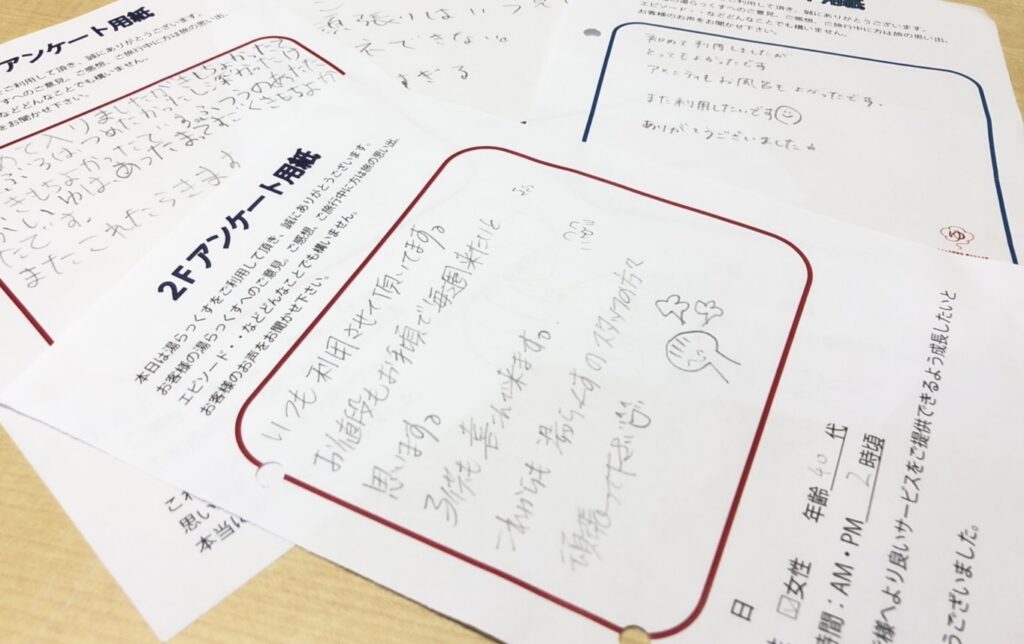 アンケート用紙
ご利用して頂き、誠にありがとうございます。
すへのご意見、ご感想、ご旅行中に方は旅の思い出、
などどんなことでも構いません。
お聞かせ下さい。
めて入りましたがきもちよかった
ふろはつめたかった
きもちよかった
かいゆは、あったまって
たです。
またこれたらきます
えできない。
すぎる
用紙
誠にありがとうございます。
お客様の湯らっくすへのご意見、ご感想、ご旅行中に方は旅の思い出、
エピソード・・などどんなことでも構いません。
お客様のお声をお聞かせ下さい。
初めて利用しましたが
とってもよかったです
アメニティもお風呂もよかったです。
また利用したいです
ありがとうございました
2Fアンケート用紙
本日は湯らっくすをご利用して頂き、誠にありがとうございます。
お客様の湯らっくすへのご意見、ご感想、ご旅行中に方は旅の思い出、
エピソード・・などどんなことでも構いません。
お客様のお声をお聞かせ下さい。
いつも利用させて頂いてます。
お値段もお手頃で毎週来たいと
思います。
子供も喜んで来ます。
これからも湯らっくすのスタッフの方々
頑張って下さい
日
☑女性 年齢 40 代
時間：AM・PM 2 時頃
様へより良いサービスをご提供できるよう成長したいと
うございました。
これ
思い
本当に